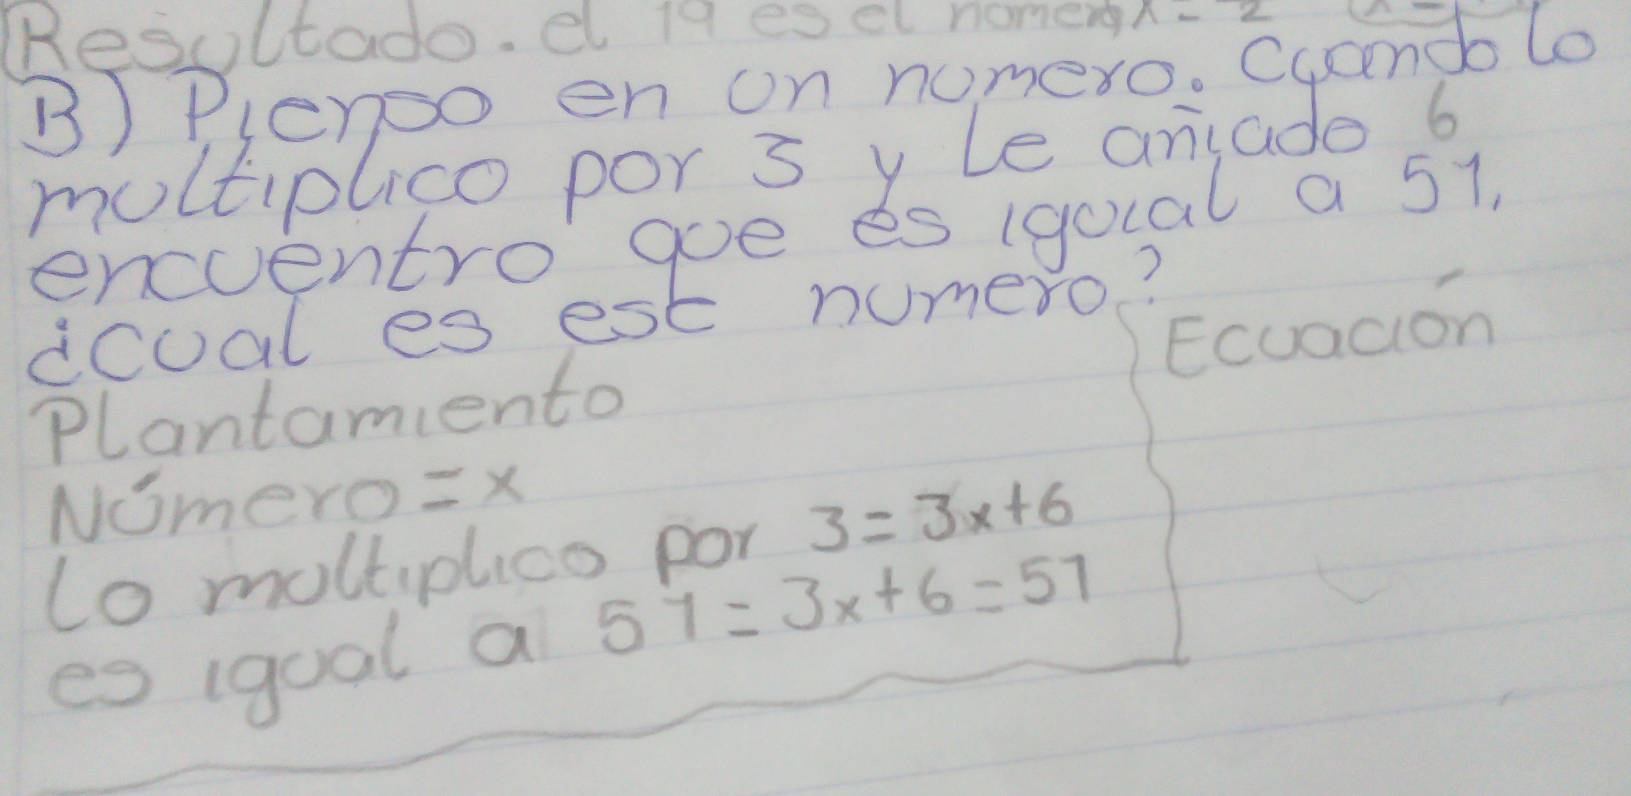 Resultado. el 19 es el x= 2
B) Pienso en un numero. Cuando lo
multiplico por 3 y le añiado 6
encuentro que es iguial a 51.
¿cual es este numero?
Ecuación
Plantamiento
Número = x
Lo multiplico por 3 = 3x+6
es igual a 51 = 3x+6=51